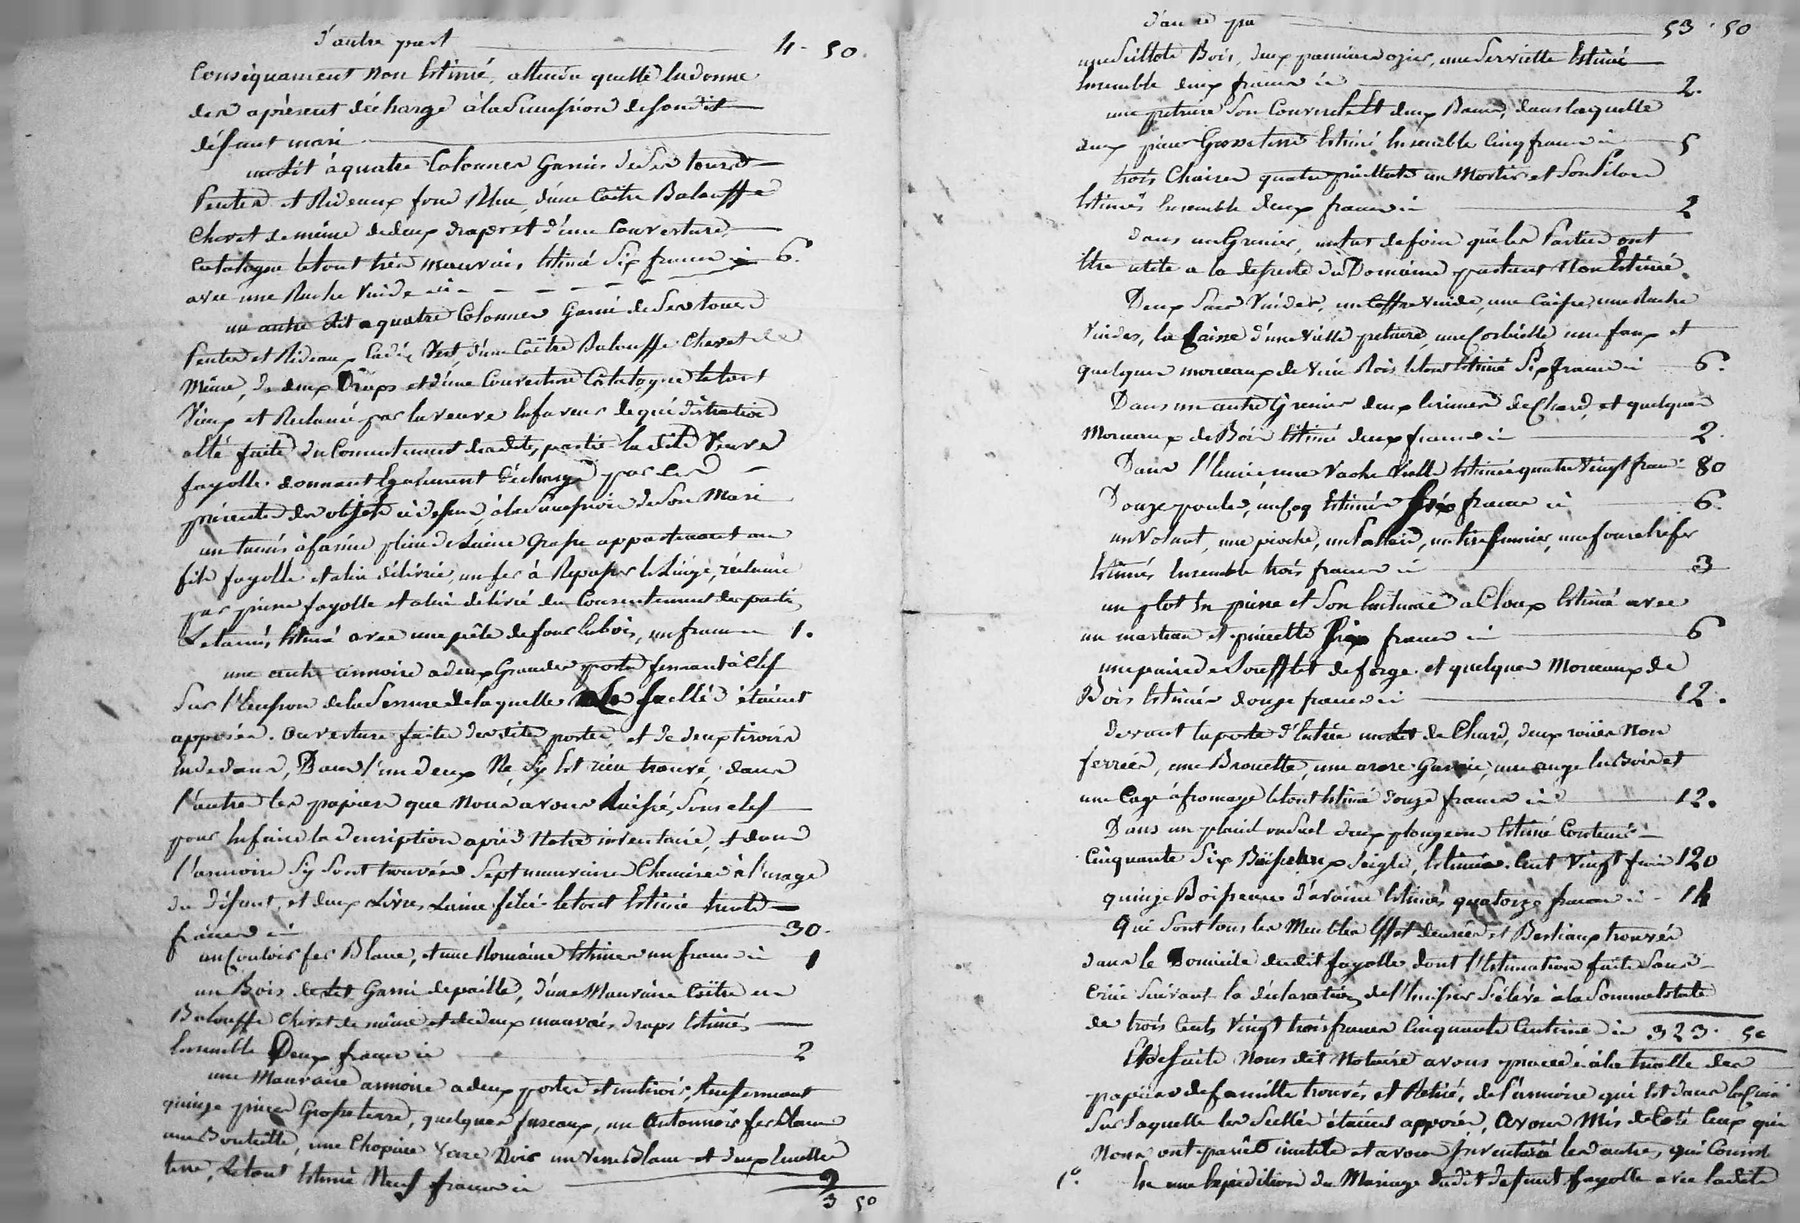 d'autre part 4. 50.
Conséquament non Estimé, attendu quelle en donne
des aprèsent décharge à la Succession de son dit
défunt mari
un Lit à quatre Colonnes Garnis de Ses tours
Pentes et Rideaux fond Bleu, d'une Coëtre Balouffe
Chevet de même de deux draps et d'une Couverture
Catalogne le tout très mauvais, Estimé Six francs ci 6.
avec une Ruche Vuide ci
un autre Lit a quatre Colonnes Garni de Ses tours
Pentes et Rideaux Cadis Vert, d'une Coëtre Balouffe Chevet de
Même, de deux Draps et d'une Couverture Catalogne le tout
Vieux et Réclamé par la veuve En faveur de qui distraction
a Eté faite du Consentement desdites parties ladite Veuve
fayolle donnant Egalement décharge par Ces
présentes des objets ci dessus, à la Succession de Son Mari
un tamis à farine plein de Laine Grasse appartenant au
fils fayolle et a lui délivré, un fer à Repasser le Linge, réclamé
par pierre fayolle et a lui délivré du Consentement des parties
Le tamis, Estimé avec une pêle de four En bois, un franc ci 1.
une autre armoire a deux Grandes portes fermant à Clef
Sur l'Ecusson de la Serrure de laquelle Les Scellés étaient
apposés. Ouverture faite desdites portes et de deux tiroirs
En dedans, Dans l'un deux Ne S'y Est rien trouvé, dans
l'autre les papiers que Nous avons Laissé, Sous clef
pour En faire la description après Notre inventaire, et dans
l'armoire Sy Sont trouvées Sept mauvaises Chemises à l'usage
du défunt, et deux Livres Laine filée le tout Estimé trente
francs ci 30.
un Couloir fer Blanc, et une Romaine Estimés un franc ci 1
un Bois de Lit Garni de paille, d'une Mauvaise Coëtre en
Balouffe Chevet de même et de deux mauvais draps Estimés
Ensemble Deux francs ci 2
une Mauvaise armoire a deux portes et un tiroir, Renfermant
quinze pièces Grosse terre, quelques fuseaux, un Entonnoir fer Blanc
une Bouteille, une Chopine Verre Noir un Verre Blanc et deux Ecuelles
terre, Le tout Estimé Neuf francs ci 9
3 50
d'autre pa 53. 50
une Seillote Bois, deux paniers d'ozier, une Serviette Estimé
Ensemble deux francs ci 2.
une petrière Son Couvercle Et deux Bancs, dans laquelle
deux pièces Grosse terre Estimé Ensemble Cinq francs ci 5
trois Chaises quatre un Mortier et Son Pilon
Estimés Ensemble deux francs ci 2
Dans un Grenier, un tas de foin que les Parties ont
Etre utile a la desserte du Domaine partant Non Estimé
Deux Sacs Vuides, un Coffre Vuide, une Caisse, une Ruche
Vuides, la Caisse d'une Vieille petrière une Corbeille une faux et
quelques morceaux de Vieux Bois le tout Estimé Six francs ci 6.
Dans un autre Grenier deux de Chard, et quelques
Morceaux de Bois Estimé deux francs ci 2.
Dans l'Ecurie une Vache Vieille Estimée quatre Vingt francs 80
Douze poules, un Coq Estimés Six francs ci 6.
un Volant, une pioche, un, un tire fumier, une fourche fer
Estimés Ensemble trois francs ci 3
un plot En pierre et Son a Cloux Estimé avec
un marteau et pincette Six francs ci 6
une paire de Soufflet de forge et quelques Morceaux de
Bois Estimés douze francs ci 12.
Devant la porte d'Entrée un de Chard, deux roües Non
ferrées, une Brouette, une arare Garnie, une auge En Bois et
une Cage à fromage le tout Estimé douze francs ci 12.
Dans un deux plongeons Estimé Contenir
Cinquante Six Boisseaux Seigle, Estimés Cent Vingt francs 120
quinze Boisseaux d'avoine Estimés quatorze francs ci 14
Qui Sont tous les Meubles Effets denrées et Bestiaux trouvés
dans le Domicile dudit fayolle dont l'Estimation faite Sans
Criée Suivant la déclaration de l'huissier S'élève à la Somme totale
de trois Cents Vingt trois francs Cinquante Centimes ci 323. 50
Et de Suite Nous dit Notaire avons procédé à la trialle des
papiers de famille trouvés et Retiré, de l'armoire qui Est dans la
Sur laquelle les Scellés étaient apposés, avons Mis de Coté Ceux qui
Nous ont parûs inutile et avons Inventorié les autres, qui Consist
1°. En une Expédition du Mariage dudit défunt fayolle avec ladite